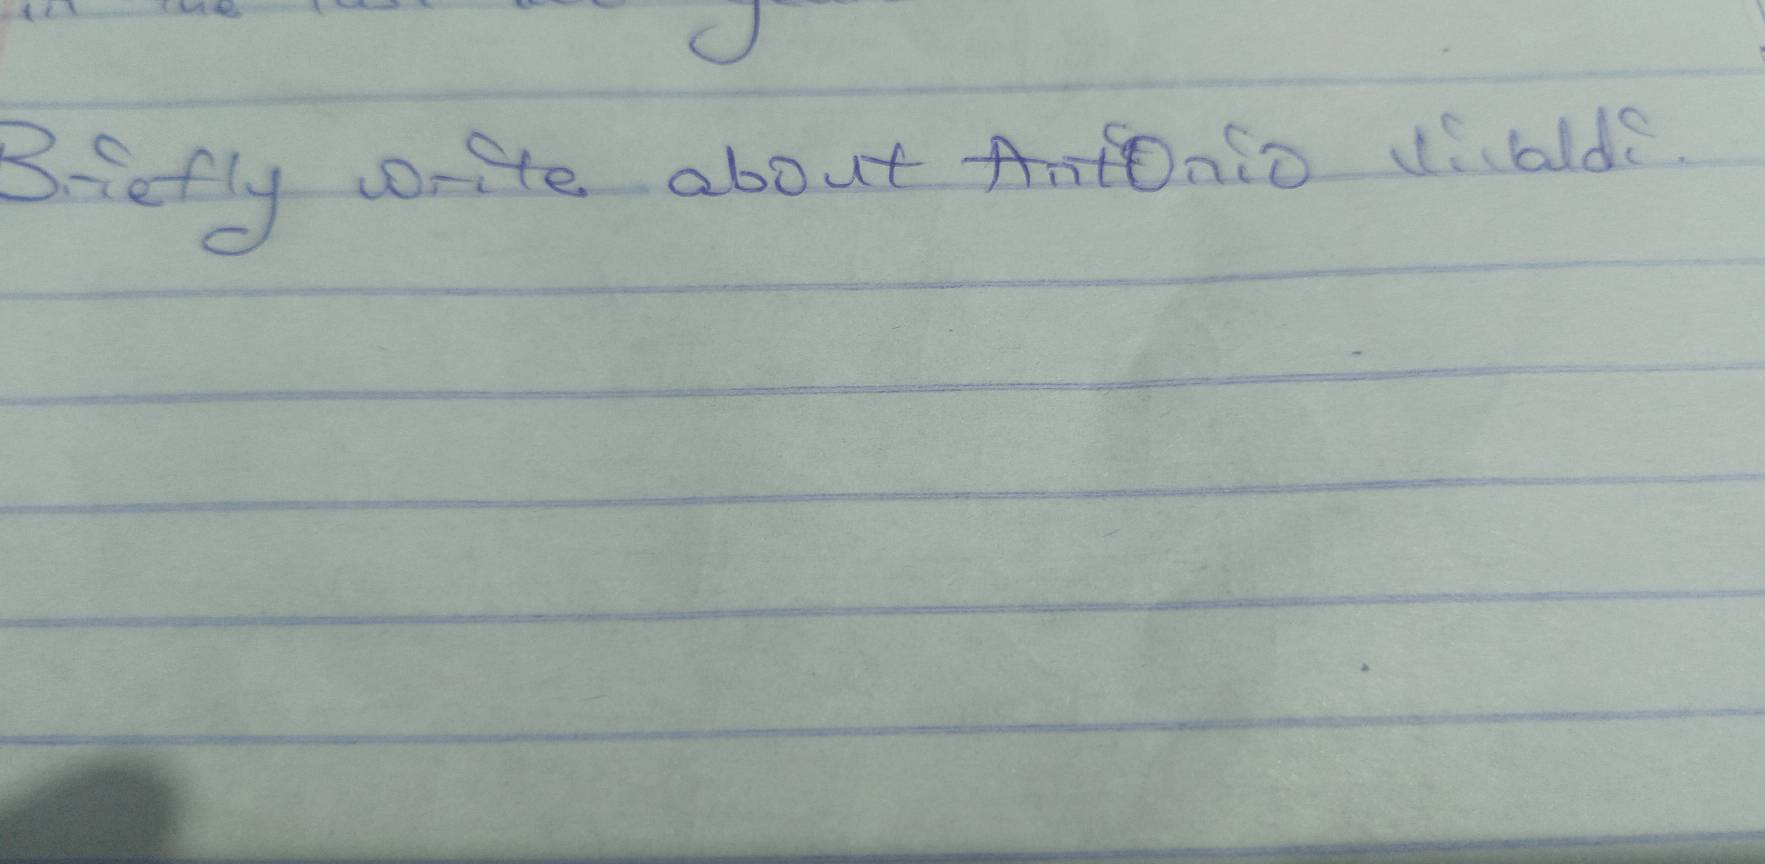 in the
Briefly write about Antonio Vivaldi.